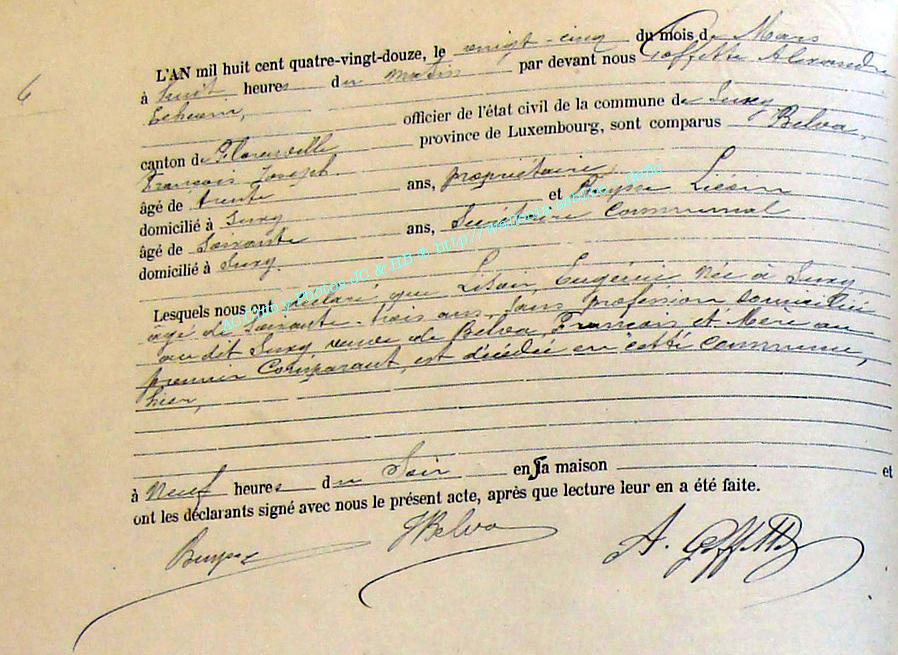 6
L'AN mil huit cent quatre-vingt-douze, le vingt-cinq du mois de Mars
à huit heures du matin par devant nous Goffette Alexandre
Echevin, officier de l'état civil de la commune de Suxy
canton de Florenville province de Luxembourg, sont comparus Belva,
François Joseph
âgé de trente ans, propriétaire,
domicilié à Suxy et
âgé de Soixante ans, Secrétaire Communal
domicilié à Suxy.
Lesquels nous ont déclaré que Lisoir Eugénie née à Suxy
agé de Soixante-trois ans, sans profession domiciliée
au dit Suxy veuve de Belva François, et Mère au
premier Comparant, est décédée en cette commune,
hier,
à Neuf heures du Soir en sa maison et
ont les déclarants signé avec nous le présent acte, après que lecture leur en a été faite.
JBelva
A. Goffette